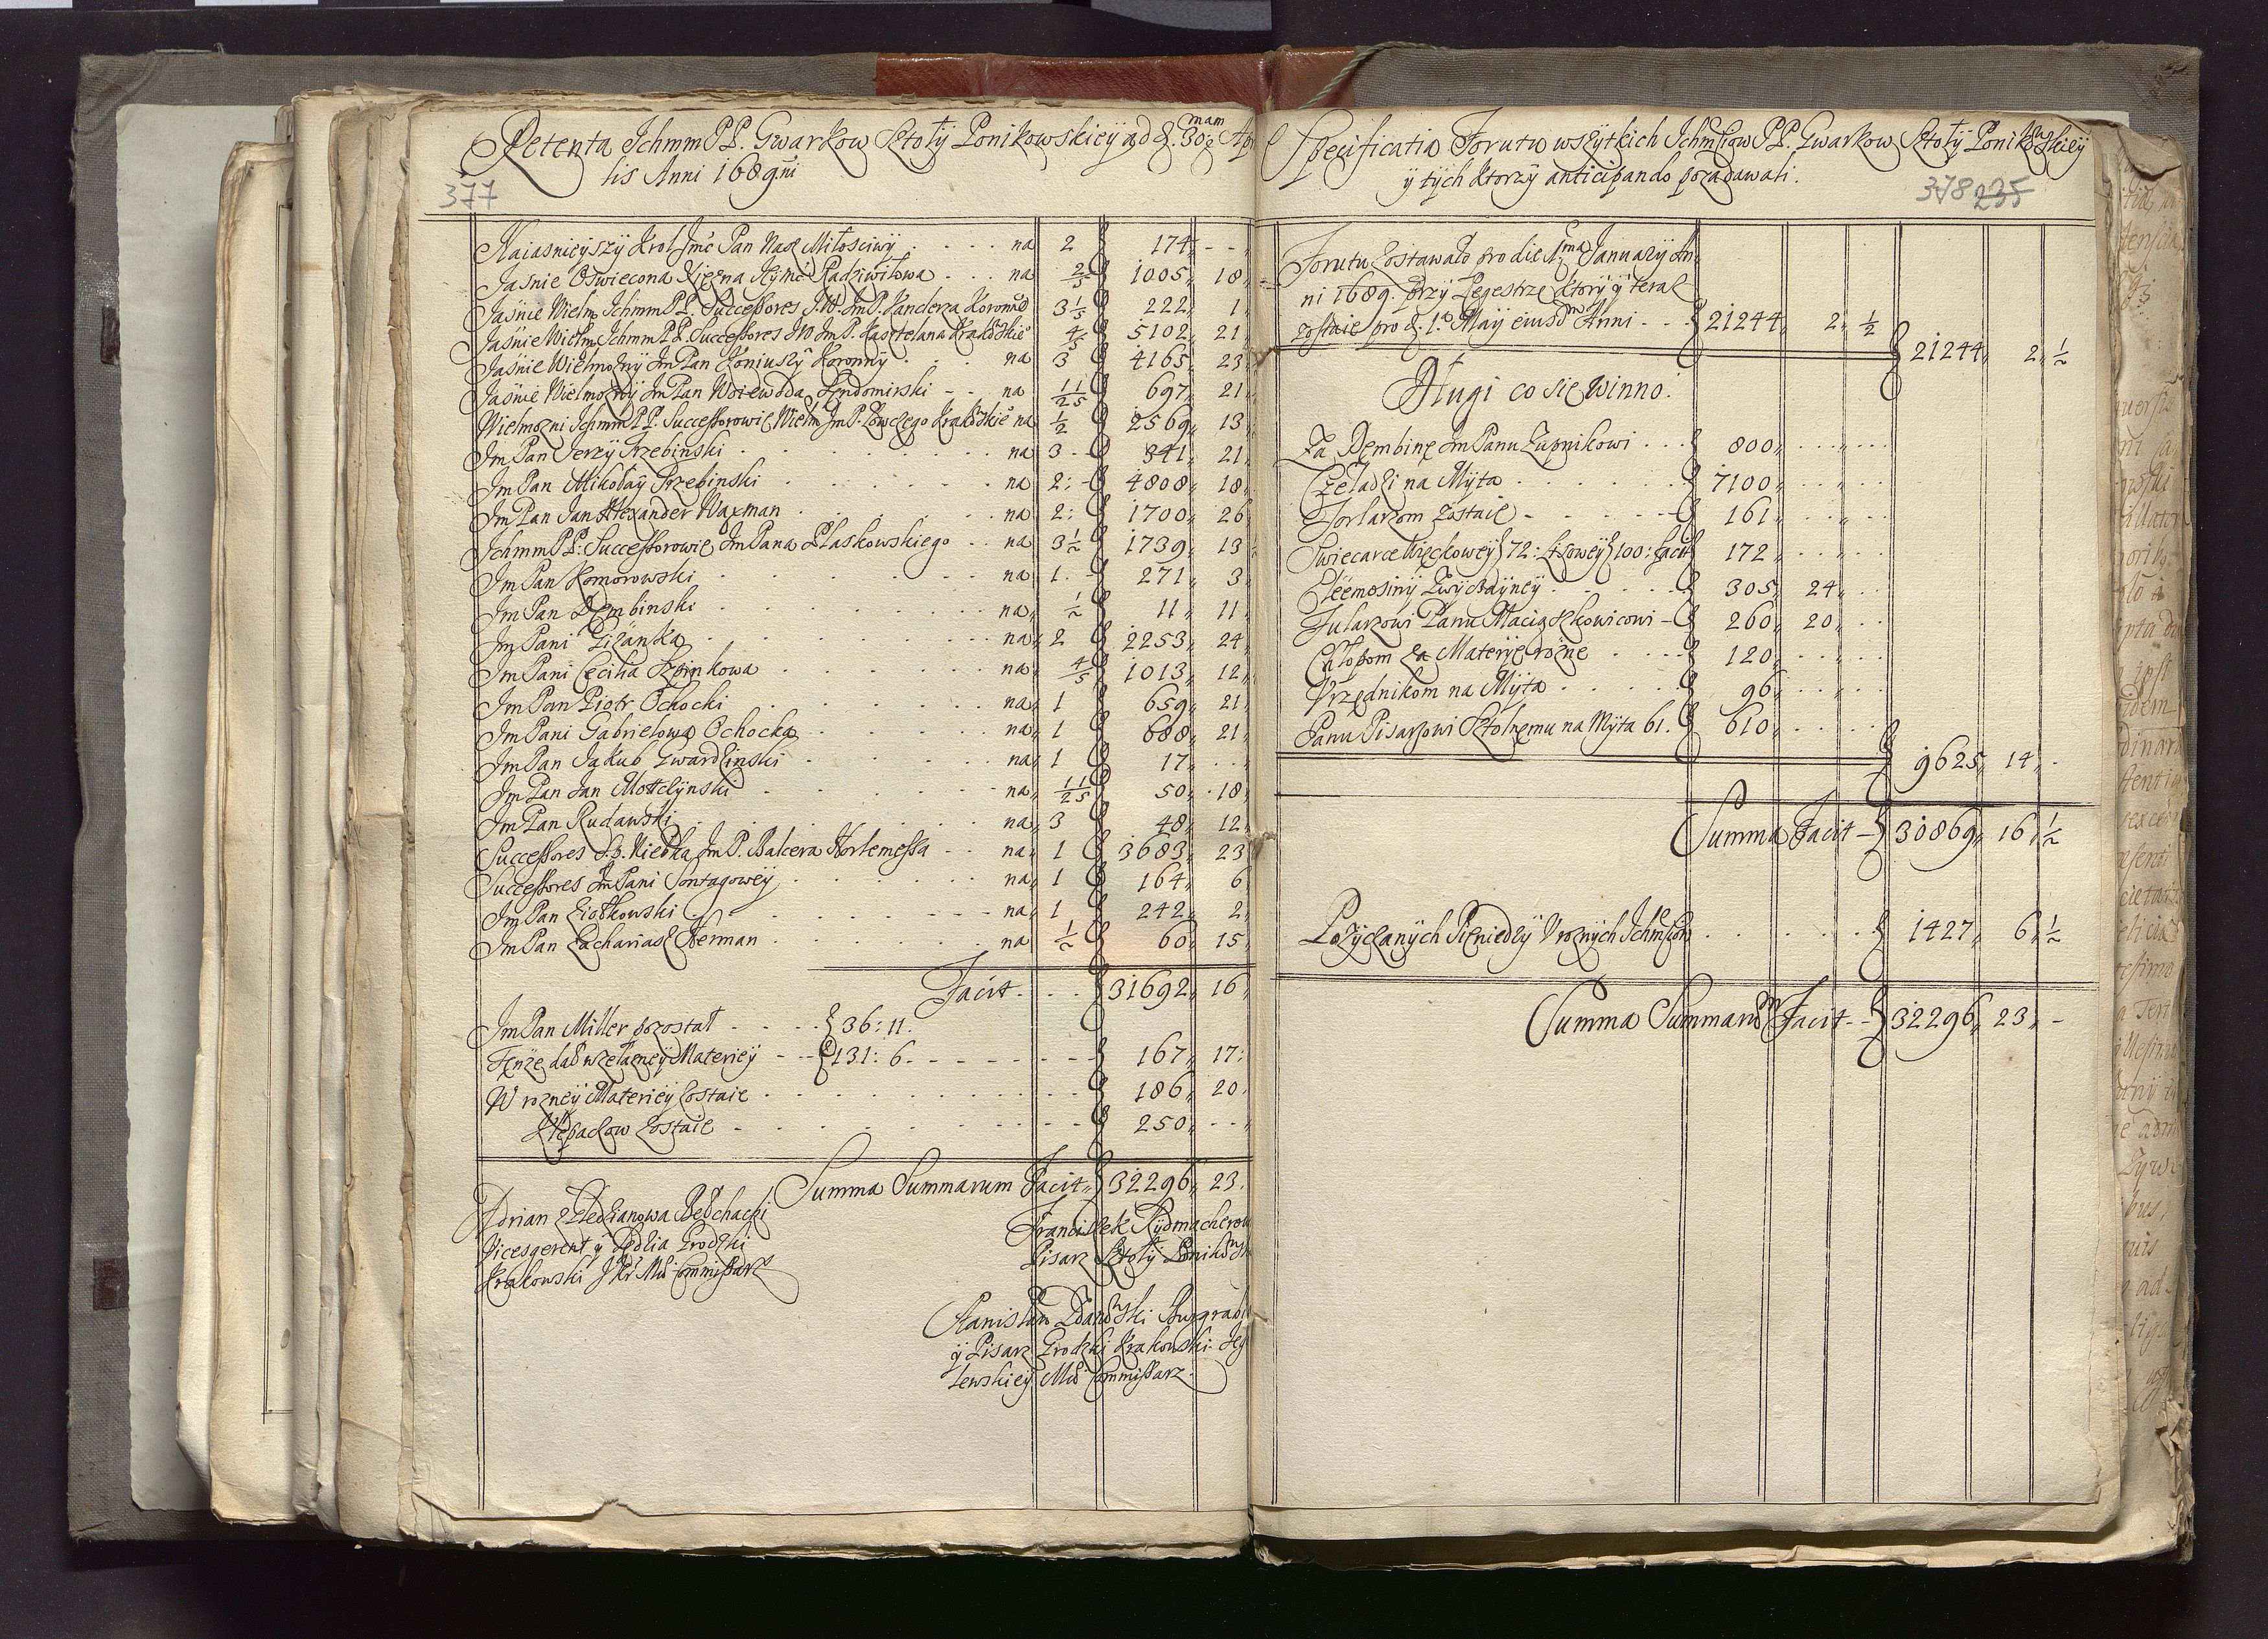 Retenta Ichmm PP. Gwarkow Sztoly Ponikowskiey ad d. 30mam Apri
lis Anni 1689ni
377
Naiasnieyszy Krol Jmć Pan Nasz Miłosciwy . . . . na 2 174 - -
Jasnie Oswiecona Xiężna Jeymć Radziwiłowa . . . na 2/5 1005 18
Jaśnie Wielm Ichmm PP. Successores J.W. Jm P. Kanclerza Koronnō 3 1/5 222 1
Jaśnie Wielm Ichmm PP. Successores JW Jm P. Kasztelana Krakowskie 4/5 5102 21
Jaśnie Wielmożny Jm Pan Koniuszy Koronny . . na 3 4165 23
Jaśnie Wielmożny Jm Pan Woiewoda Sendomirski - - na 11/25 697 21
Wielmozni Ichmm PP. Successorowie Wielm Jm P. Łowczego Krakowskie na 1/2 2569 13
Jm Pan Jerzy Trzebinski . . . na 3 - 841 21
Jm Pan Mikołay Trzebinski . . . na 2: - 4808 18
Jm Pan Jan Alexander Waxman . . . na 2: 1700 26
Ichmm PP: Successorowie Jm Pana Płaskowskiego . . na 3 1/2 1739 13
Jm Pan Komorowski . . . na 1 - 271 3
Jm Pan Dembinski . . . na 1/2 11 11
Jm Pani Piżanka . . . na 2 2253 24
Jm Pani Cecilia Szpinkowa . . . na 4/5 1013 12
Jm Pan Piotr Ochocki . . . na 1 659 21
Jm Pani Gabrielowa Ochocka . . . na 1 688 21
Jm Pan Jakub Gwardzinski . . . na 1 17 . .
Jm Pan Jan Mottczynski . . . na 11/25 50 18
Jm Pan Rudawski . . . na 3 48 12
Successores S.p. Niebka Jm P. Balcera Hortemessa . . na 1 3683 23
Successores Jm Pani Sontagowey . . . na 1 164 6
Jm Pan Ziołkowski . . . na 1 242 2
Jm Pan Zachariasz Herman . . . na 1/2 60 15
Facit . . . 31692 16
Jm Pan Miller pozostał . . . . 36: 11.
Tenże dał w żelazney Materiey - - 131: 6. - - - 167 17:
W rozney Materiey zostaie . . . 186 20
Kłepaczow zostaie - . . . 250 - -
Summa Summarum Facit 32296 23.
Adrian z Bełchacki
Vicesgerent y Sędzia Grodzki
Krakowski J Kr Mći Commissarz
Franciszek Rydmacherow
Pisarz Sztoly Ponikowsk
Stanisław Burgrab
y Pisarz Grodzki Krakowski Je
lewskiey Mći Commissarz.
Specificatia Forutu wszytkich Ichmsciow PP. Gwarkow Sztoly Ponikowskiey
y tych ktorzy anticipando pozadawali.
378 235
Forutu zostawało pro die 1ma January An
ni 1689. przy Regestrze ktory y teraz
zostaie pro d. 1a May eiusdm Anni - - - 21244 2 1/2
21244 2 1/2
Długi co się winno.
Za Dembinę Jm Panu Zupnikowi . . . 800 . . .
Czeladzi na Myta . . . 7100 . . .
Forlarzom zostaie - . . . 161 . . .
Swiecarce Więckowey 72: Lizowey 100: facit 172 . . .
Eleemosiny Zwyczayney . . . 305 24 . .
Fularzowi Panu Maciąszkowicowi - 260 20 . .
Chłopom za Materye rożne . . . 120 . . .
Vrzędnikom na Myta . . . 96 . . .
Panu Pisarzowi Sztolnemu na Myta 61. 610 . . .
9625 14 .
Summa Facit - 30869 16 1/2
Pożyczanych Pieniędzy V roznych Ichmsciow . . . 1427 6 1/2
Summa Summarūm Facit - - 32296 23 -